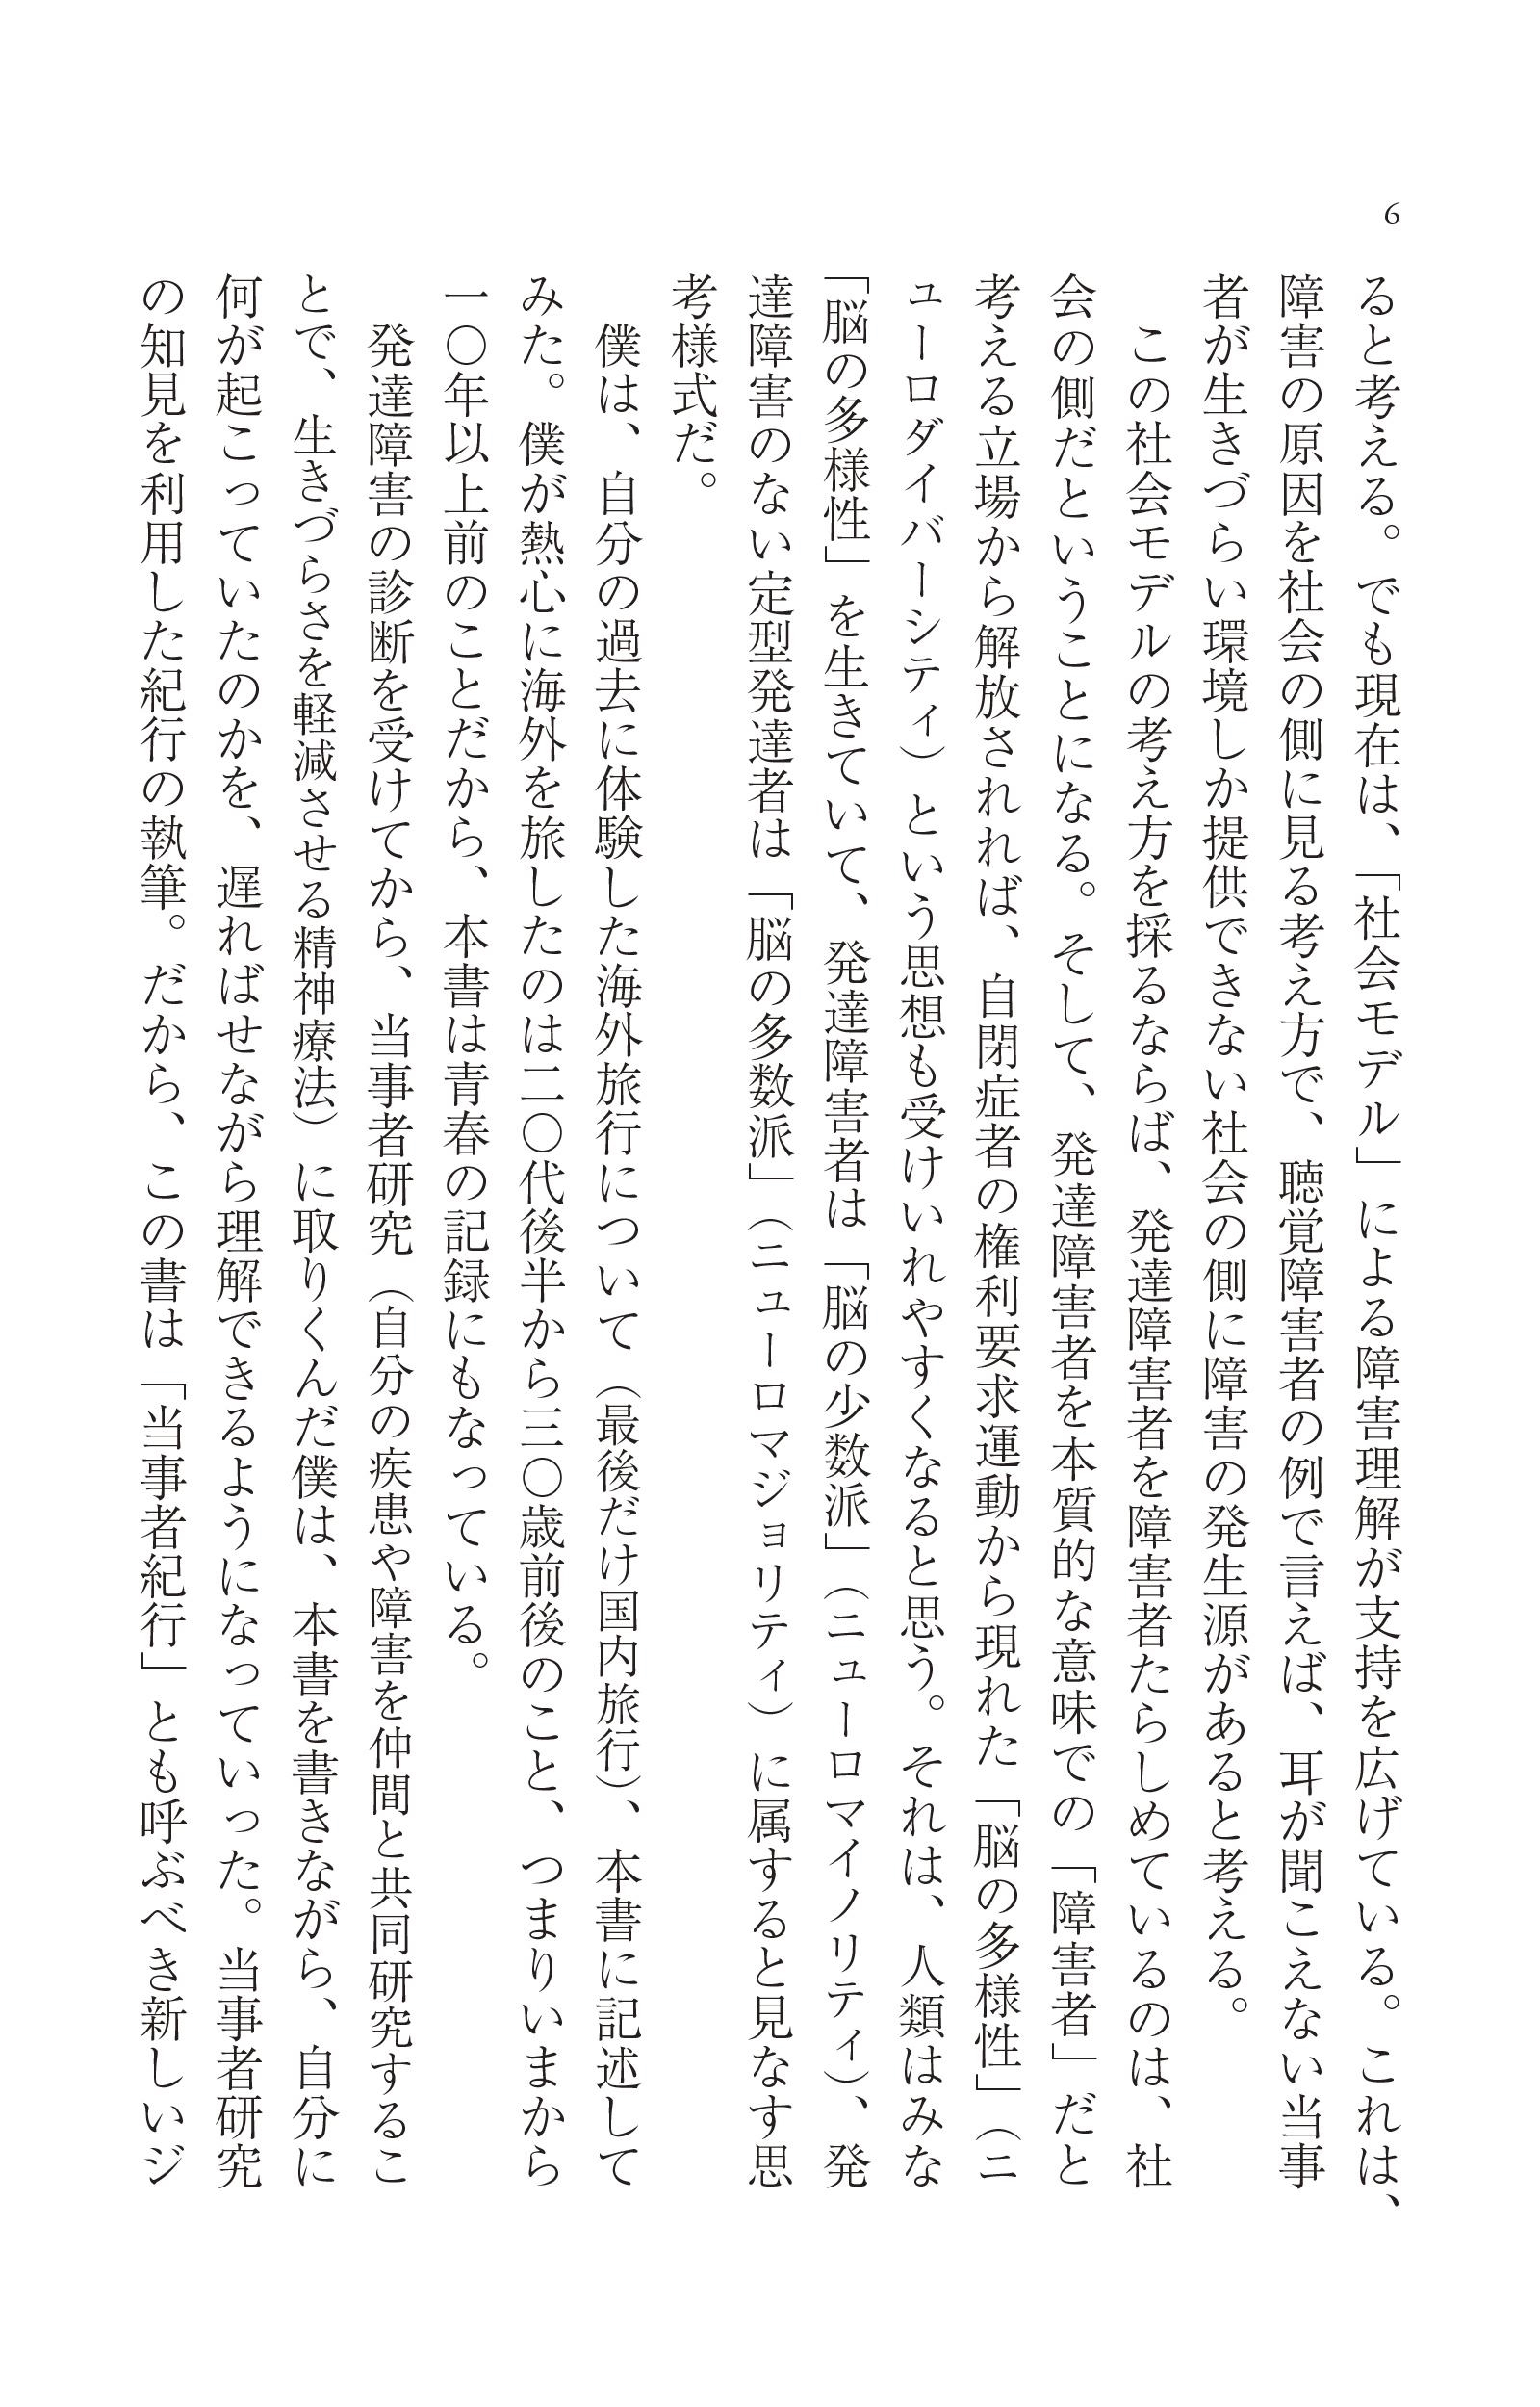 6
ると考える。でも現在は、「社会モデル」による障害理解が支持を広げている。これは、
障害の原因を社会の側に見る考え方で、聴覚障害者の例で言えば、耳が聞こえない当事
者が生きづらい環境しか提供できない社会の側に障害の発生源があると考える。
　この社会モデルの考え方を採るならば、発達障害者を障害者たらしめているのは、社
会の側だということになる。そして、発達障害者を本質的な意味での「障害者」だと
考える立場から解放されれば、自閉症者の権利要求運動から現れた「脳の多様性」（ニ
ューロダイバーシティ）という思想も受けいれやすくなると思う。それは、人類はみな
「脳の多様性」を生きていて、発達障害者は「脳の少数派」（ニューロマイノリティ）、発
達障害のない定型発達者は「脳の多数派」（ニューロマジョリティ）に属すると見なす思
考様式だ。
　僕は、自分の過去に体験した海外旅行について（最後だけ国内旅行）、本書に記述して
みた。僕が熱心に海外を旅したのは二〇代後半から三〇歳前後のこと、つまりいまから
一〇年以上前のことだから、本書は青春の記録にもなっている。
　発達障害の診断を受けてから、当事者研究（自分の疾患や障害を仲間と共同研究するこ
とで、生きづらさを軽減させる精神療法）に取りくんだ僕は、本書を書きながら、自分に
何が起こっていたのかを、遅ればせながら理解できるようになっていった。当事者研究
の知見を利用した紀行の執筆。だから、この書は「当事者紀行」とも呼ぶべき新しいジ